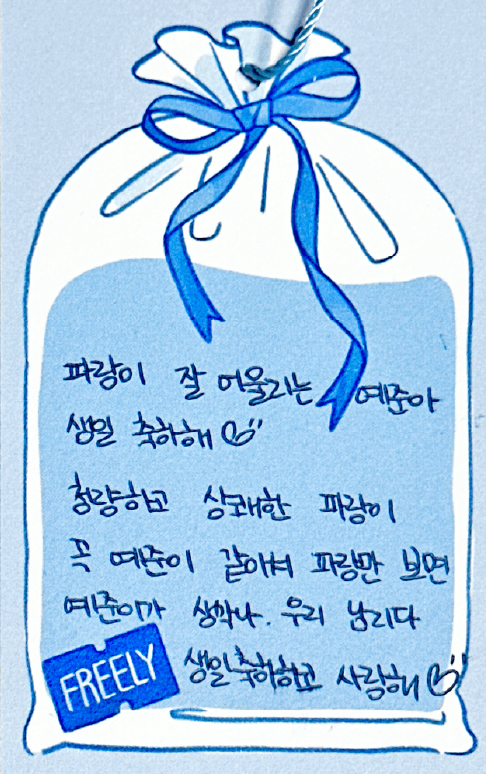 파랑이 잘 어울리는 예준아
생일 축하해
청량하고 상쾌한 파랑이
꼭 예준이 같아서 파랑만 보면
예준이가 생각나. 우리 남리다
FREELY 생일축하하고 사랑해